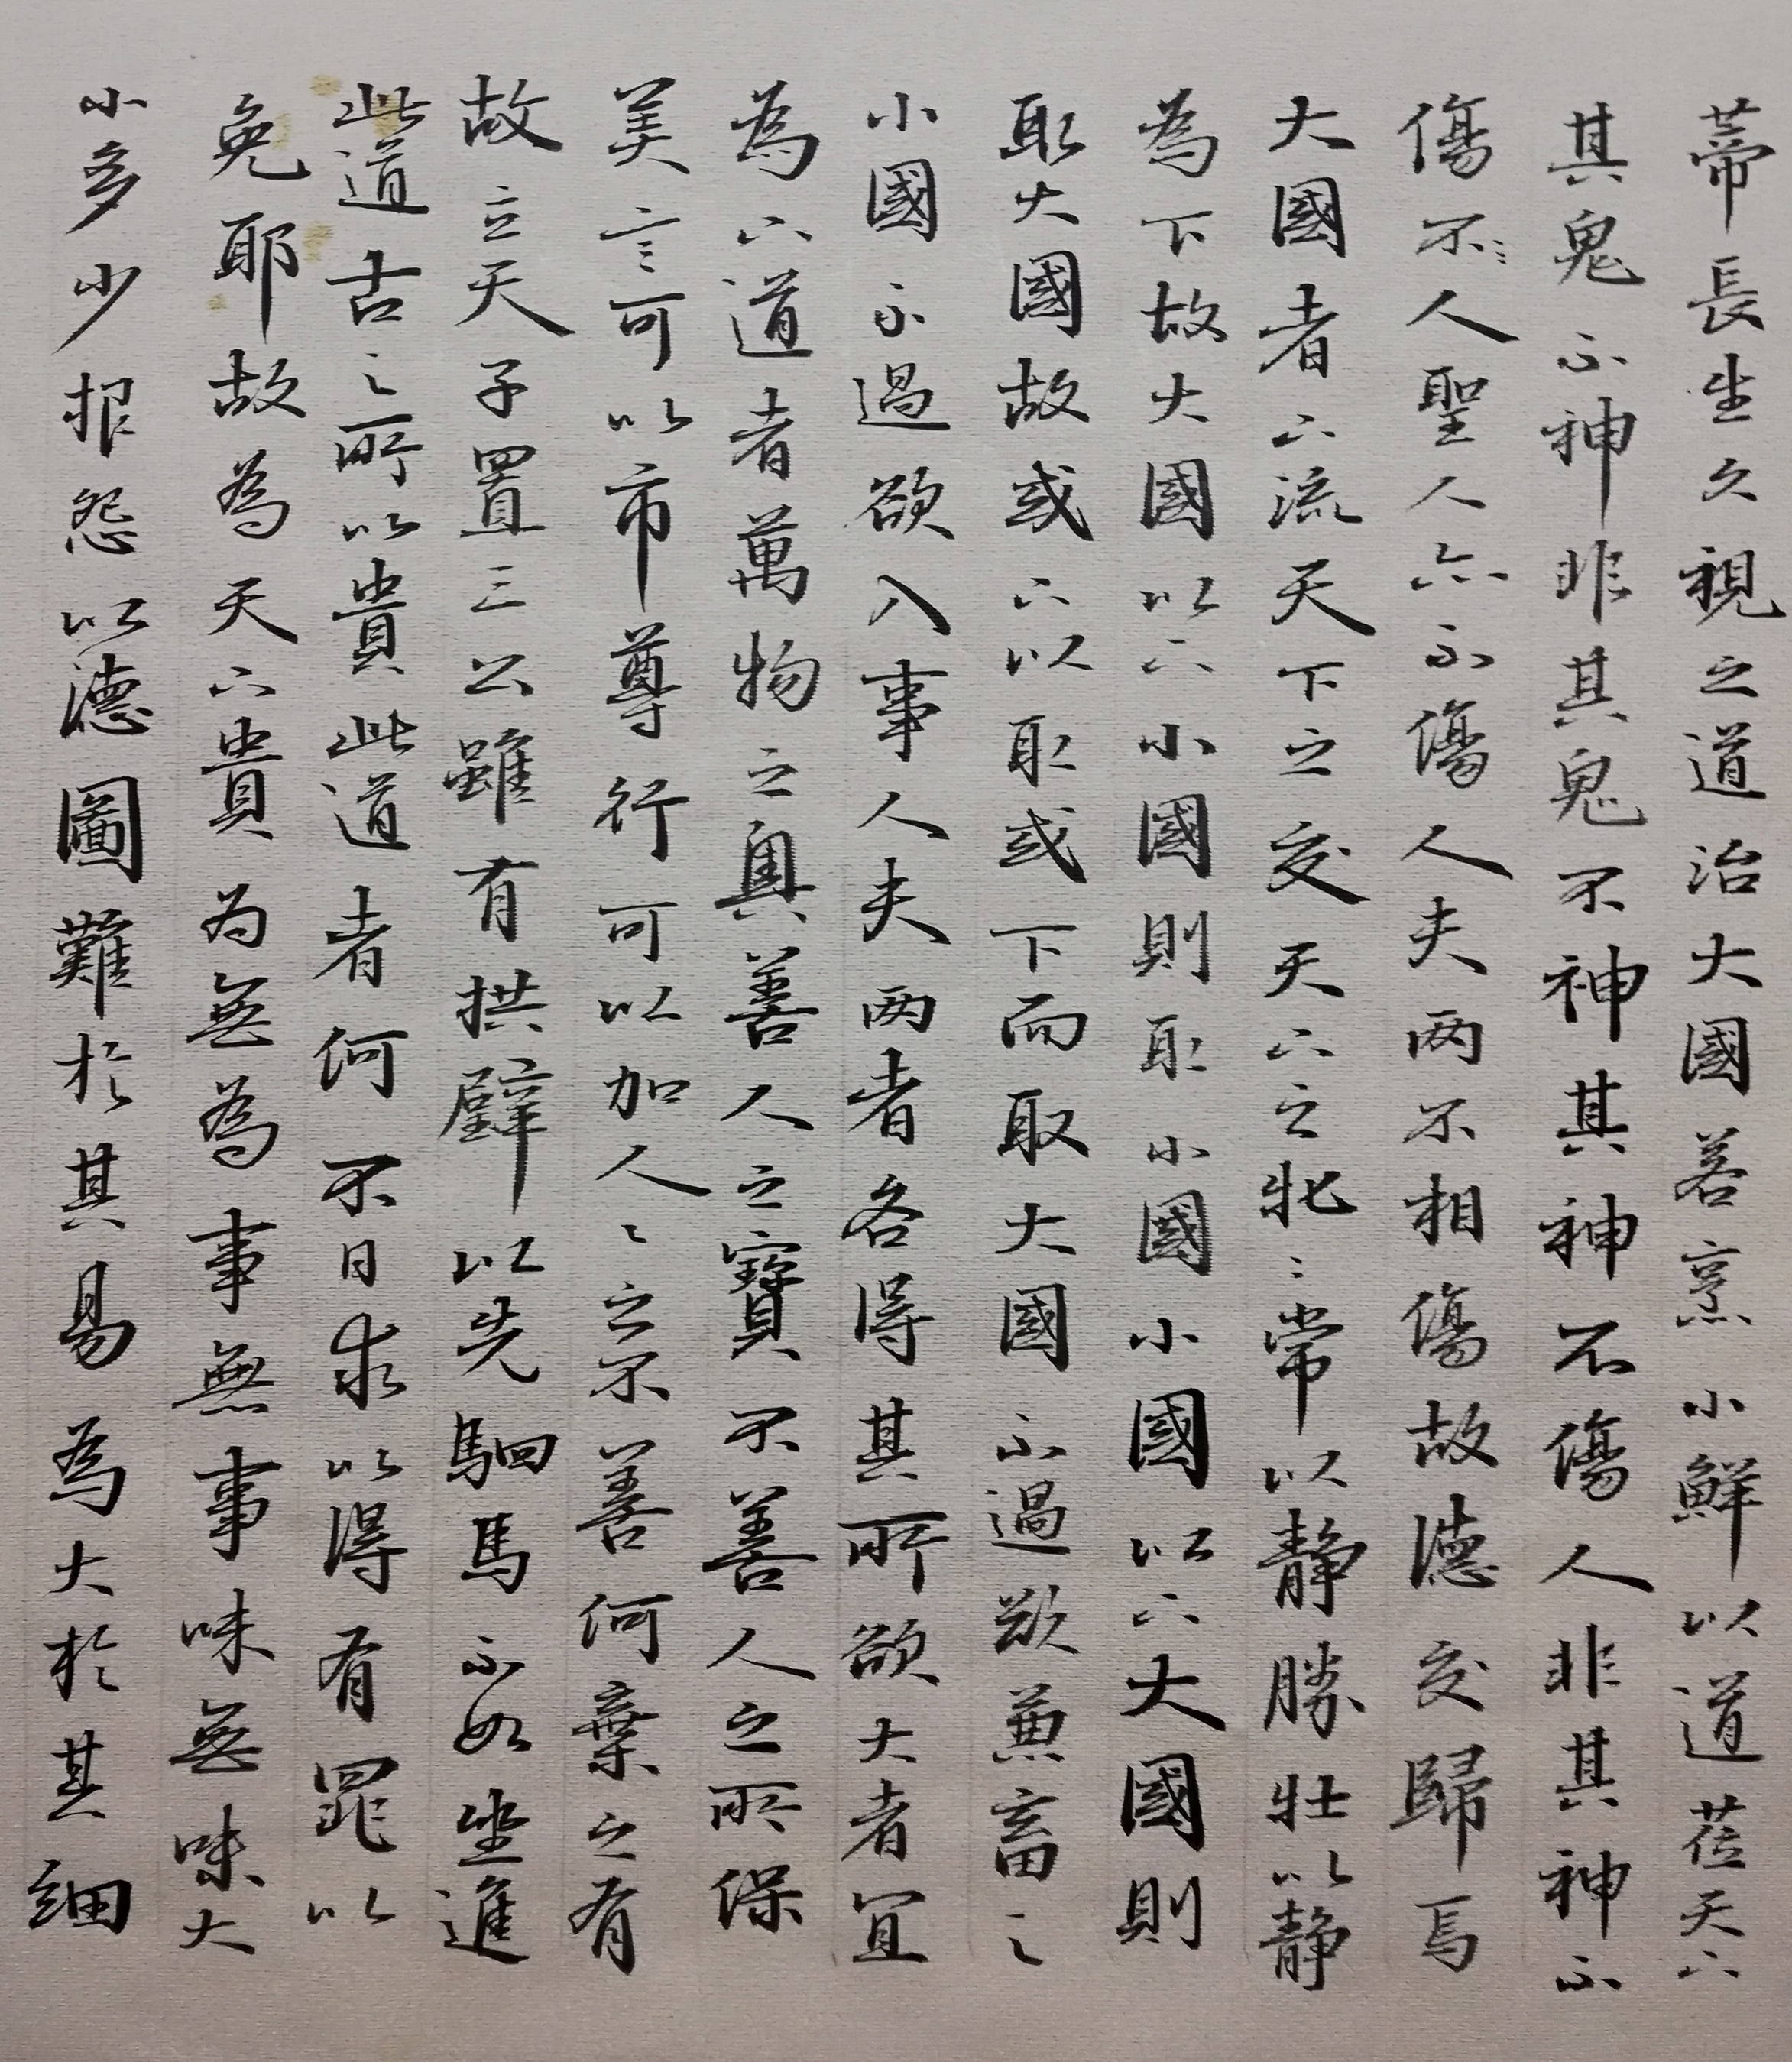 蒂長生久視之道治大國若烹小鮮以道莅天下
其鬼不神非其鬼不神其神不傷人非其神不
傷不〻人〻聖人亦不傷人夫两不相傷故德交歸焉
大國者下流天下之交天下之牝〻常以静勝壯以静
為下故大國以下小國則取小國小國以下大國則
取大國故或下以取或下而取大國不過欲兼畜〻
小國不過欲入事人夫两者各得其所欲大者宜
為下道者萬物之奥善人之寶不善人之所保
美言可以市尊行可以加人〻之不善何棄之有
故立天子置三公雖有拱璧以先駟馬不如坐進
此道古之所以貴此道者何不日求以得有罪以
免耶故為天下貴为無為事無事味無味大
小多少报怨以德圖難於其易為大於其細